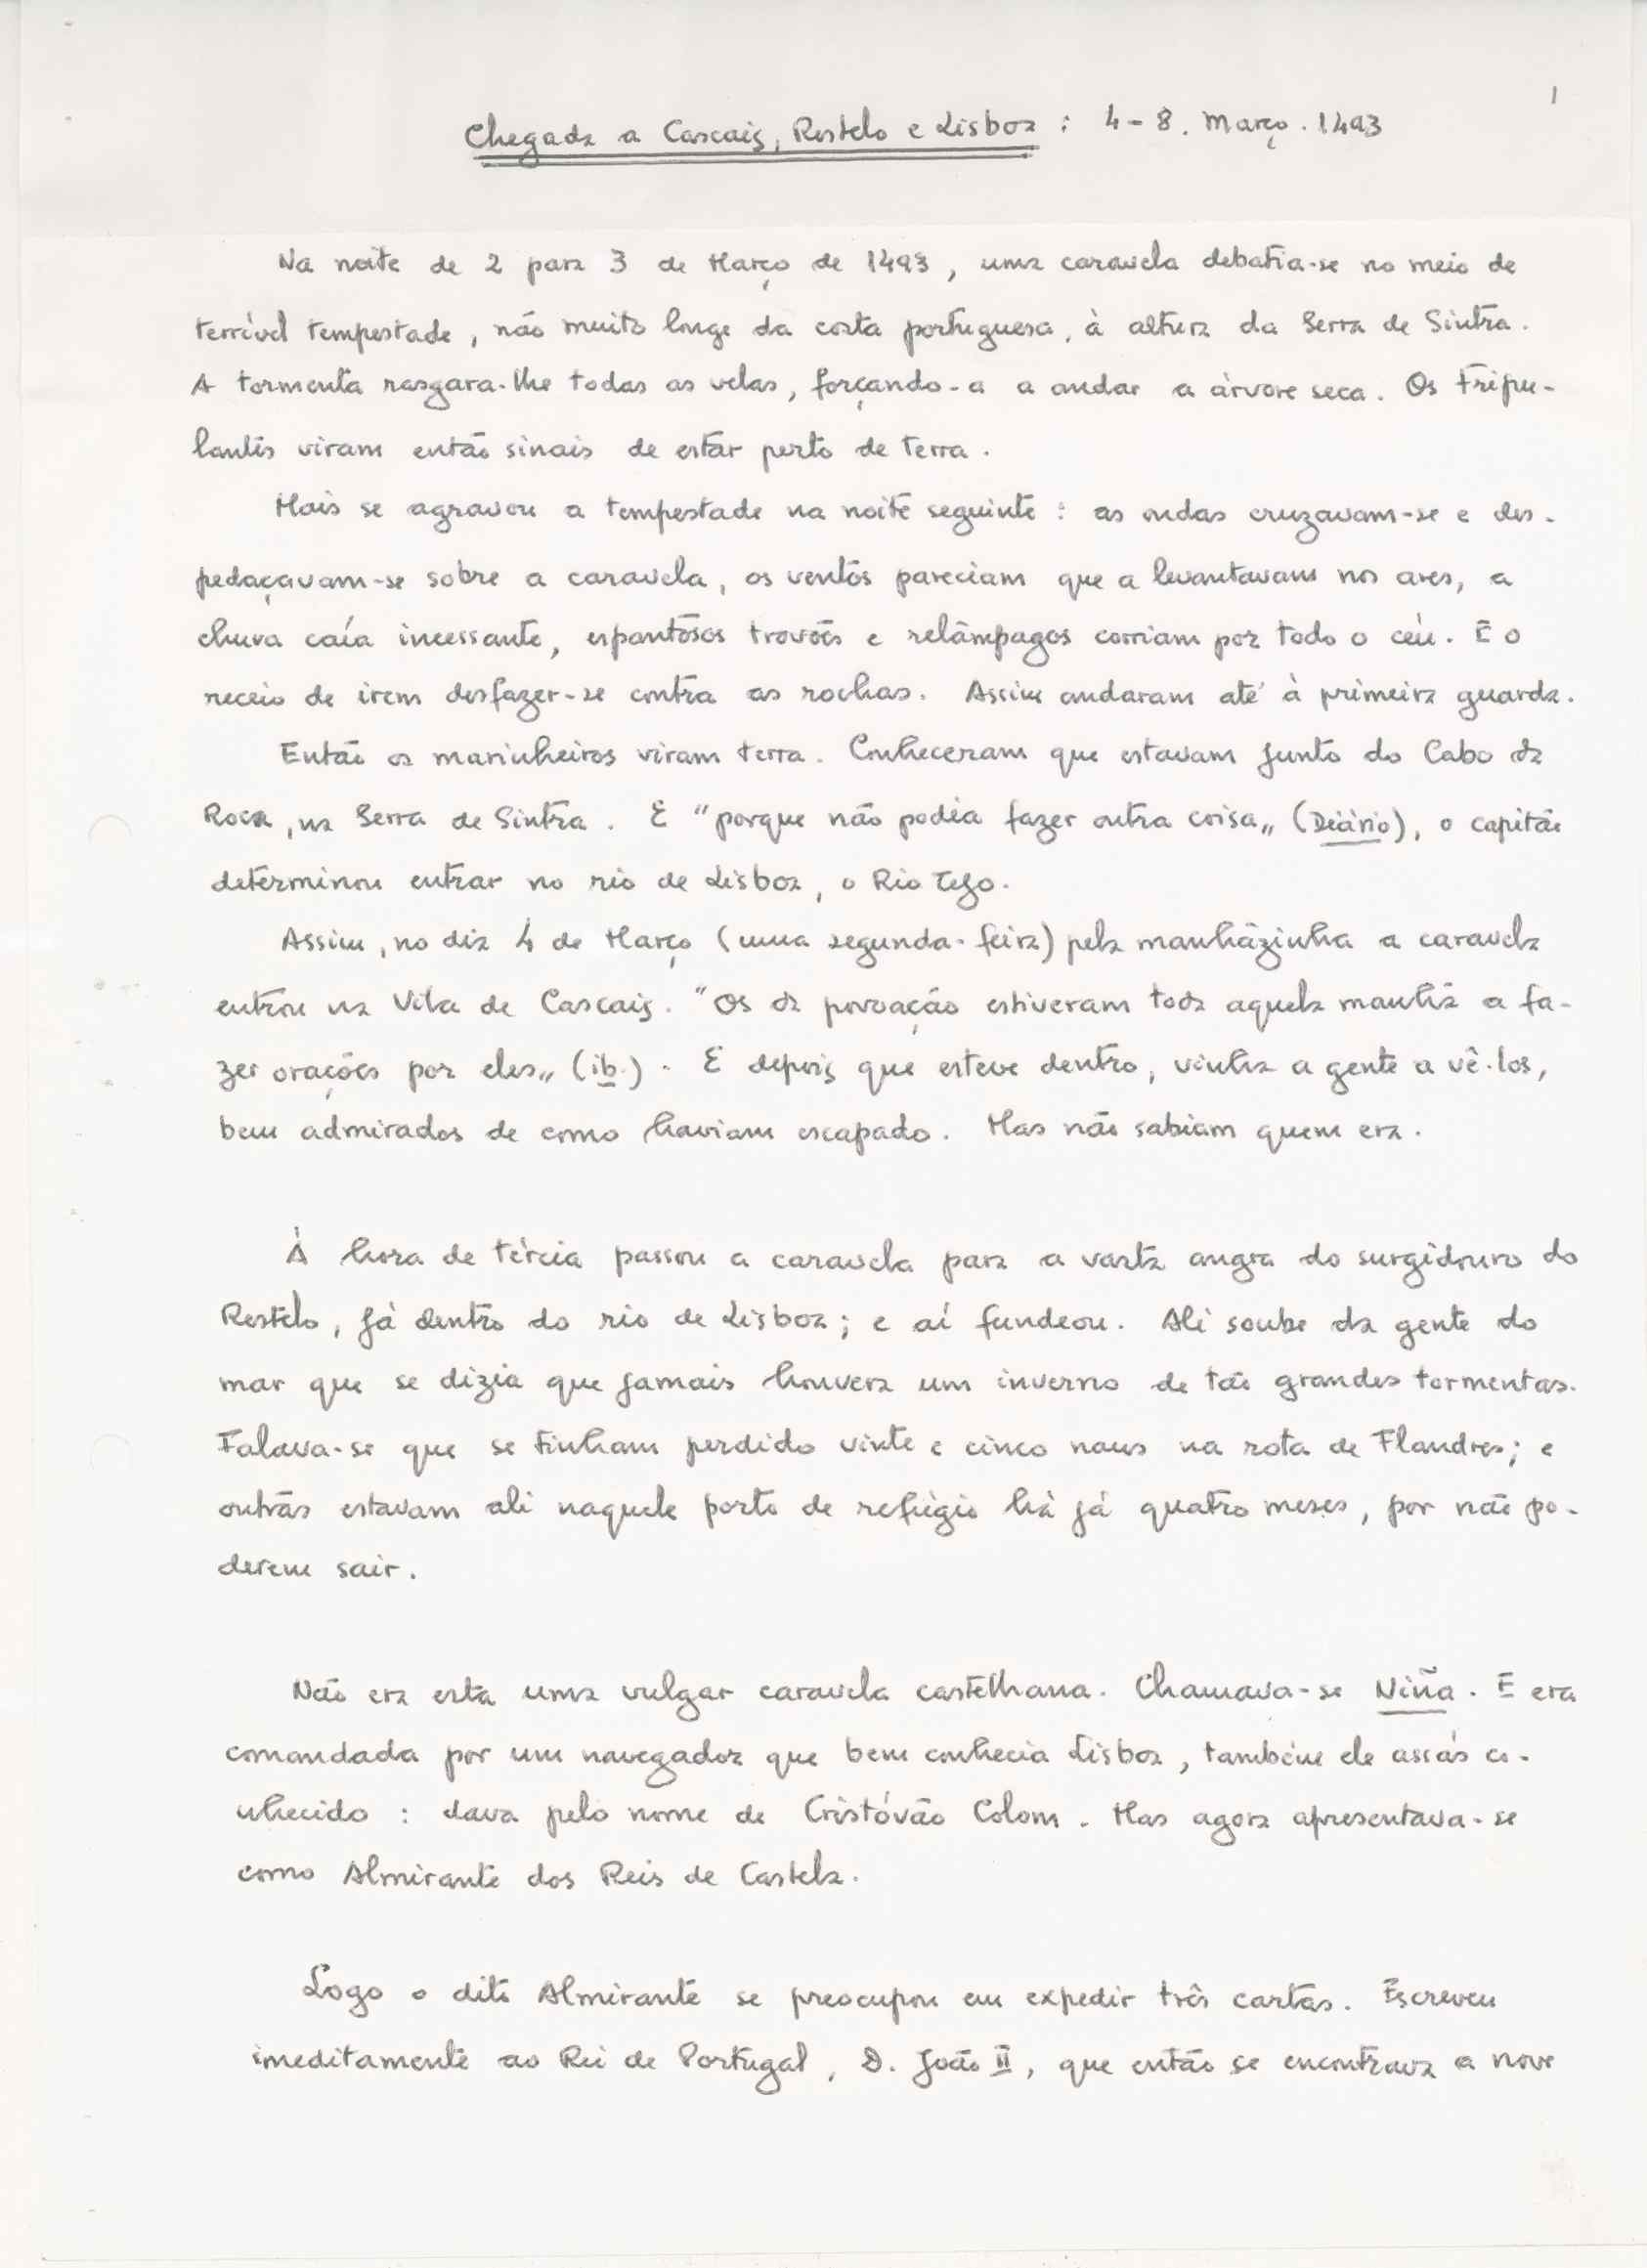 1
Chegada a Cascais, Restelo e Lisboa : 4-8. Março. 1493
Na noite de 2 para 3 de Março de 1493, uma caravela debatia-se no meio de
terrível tempestade, não muito longe da costa portuguesa, à altura da Serra de Sintra.
A tormenta rasgara-lhe todas as velas, forçando-a a andar a árvore seca. Os tripu-
lantes viram então sinais de estar perto de terra.
Mais se agravou a tempestade na noite seguinte : as ondas cruzavam-se e des-
pedaçavam-se sobre a caravela, os ventos pareciam que a levantavam nos ares, a
chuva caía incessante, espantosos trovões e relâmpagos corriam por todo o céu. E o
receio de irem desfazer-se contra as rochas. Assim andaram até à primeira guarda.
Então os marinheiros viram terra. Conheceram que estavam junto do Cabo da
Roca, na Serra de Sintra. E "porque não podia fazer outra coisa„ (Diário), o capitão
determinou entrar no rio de Lisboa, o Rio Tejo.
Assim, no dia 4 de Março (uma segunda-feira) pela manhãzinha a caravela
entrou na Vila de Cascais. "Os da povoação estiveram toda aquela manhã a fa-
zer orações por eles„ (ib.). E depois que esteve dentro, vinha a gente a vê-los,
bem admirados de como haviam escapado. Mas não sabiam quem era.
À hora de tércia passou a caravela para a vasta angra do surgidouro do
Restelo, já dentro do rio de Lisboa; e aí fundeou. Ali soube da gente do
mar que se dizia que jamais houvera um inverno de tão grandes tormentas.
Falava-se que se tinham perdido vinte e cinco naus na rota de Flandres; e
outras estavam ali naquele porto de refúgio há já quatro meses, por não po-
derem sair.
Não era esta uma vulgar caravela castelhana. Chamava-se Niña. E era
comandada por um navegador que bem conhecia Lisboa, também ele assás co-
nhecido : dava pelo nome de Cristóvão Colom. Mas agora apresentava-se
como Almirante dos Reis de Castela.
Logo o dito Almirante se preocupou em expedir três cartas. Escreveu
imeditamente ao Rei de Portugal, D. João II, que então se encontrava a nove